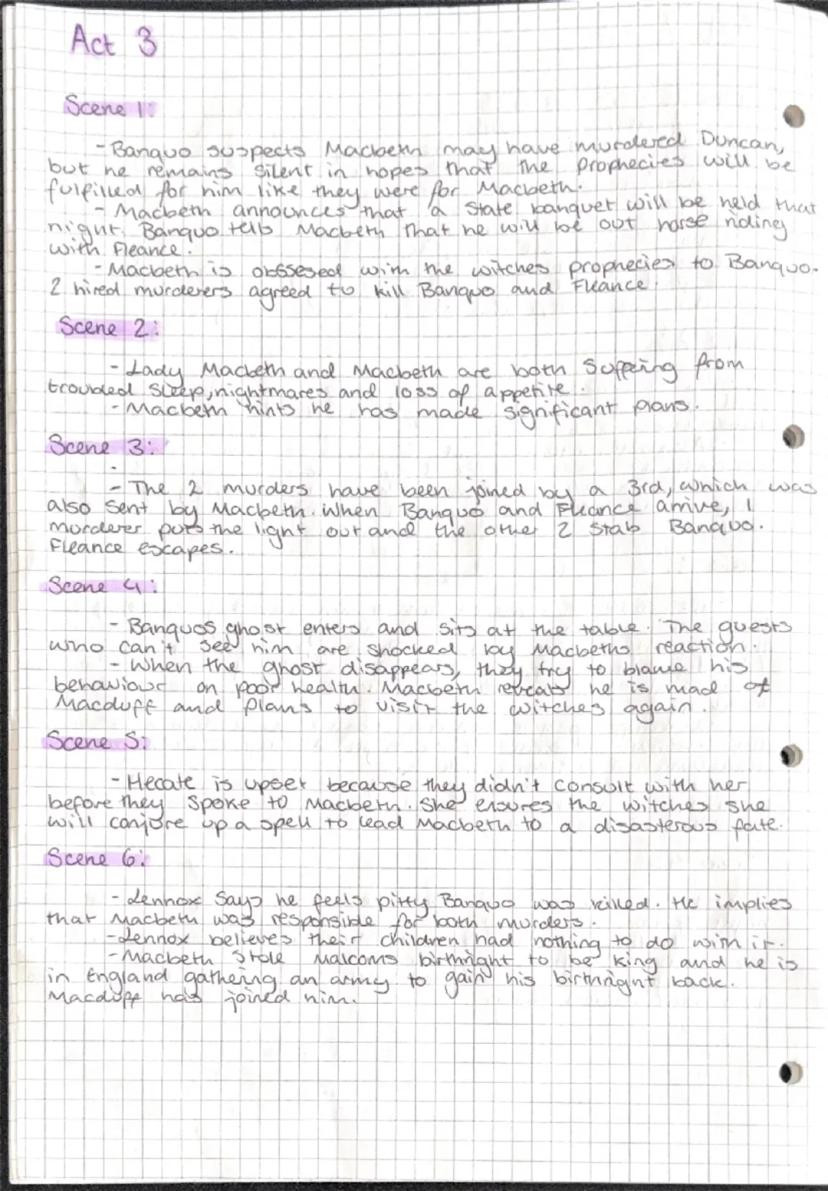 Act 3
Scene 1:
- Banquo suspects Macbeth may have murdered Duncan,
but he remains silent in hopes that the prophecies will be
fulfilled for him like they were for Macbeth.
- Macbeth announces that a state banquet will be held that
night. Banquo tells Macbeth that he will be out horse riding
with Fleance.
- Macbeth is obssesed with the witches prophecies to Banquo.
2 hired murderers agreed to kill Banquo and Fleance.
Scene 2:
- Lady Macbeth and Macbeth are both suffering from
troubled sleep, nightmares and loss of appetite.
- Macbeth hints he has made significant plans.
Scene 3:
- The 2 murders have been joined by a 3rd, which was
also sent by Macbeth. When Banquo and Fleance arrive, 1
murderer puts the light out and the other 2 stab Banquo.
Fleance escapes.
Scene 4:
- Banquos ghost enters and sits at the table. The guests
who can't see him are shocked by Macbeths reaction.
- When the ghost disappears, they try to blame his
behaviour on poor health. Macbeth reveals he is mad at
Macduff and plans to visit the witches again.
Scene 5:
- Hecate is upset because they didn't consult with her
before they spoke to Macbeth. She ensures the witches she
will conjure up a spell to lead Macbeth to a disasterous fate.
Scene 6:
- Lennox says he feels pitty Banquo was killed. He implies
that Macbeth was responsible for both murders.
- Lennox believes their children had nothing to do with it.
- Macbeth stole Malcoms birthright to be king and he is
in England gathering an army to gain his birthright back.
Macduff has joined him.